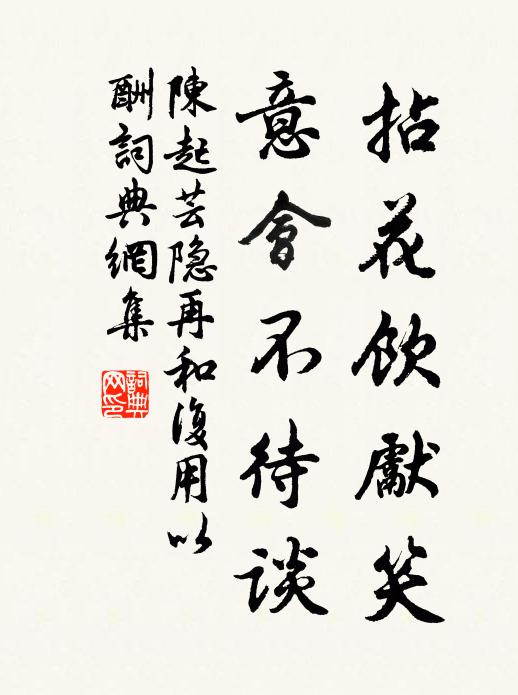 拈花飲獻笑
意會不待談
陳起芸隐再和復用以
酬詞典網集
詞典
网印